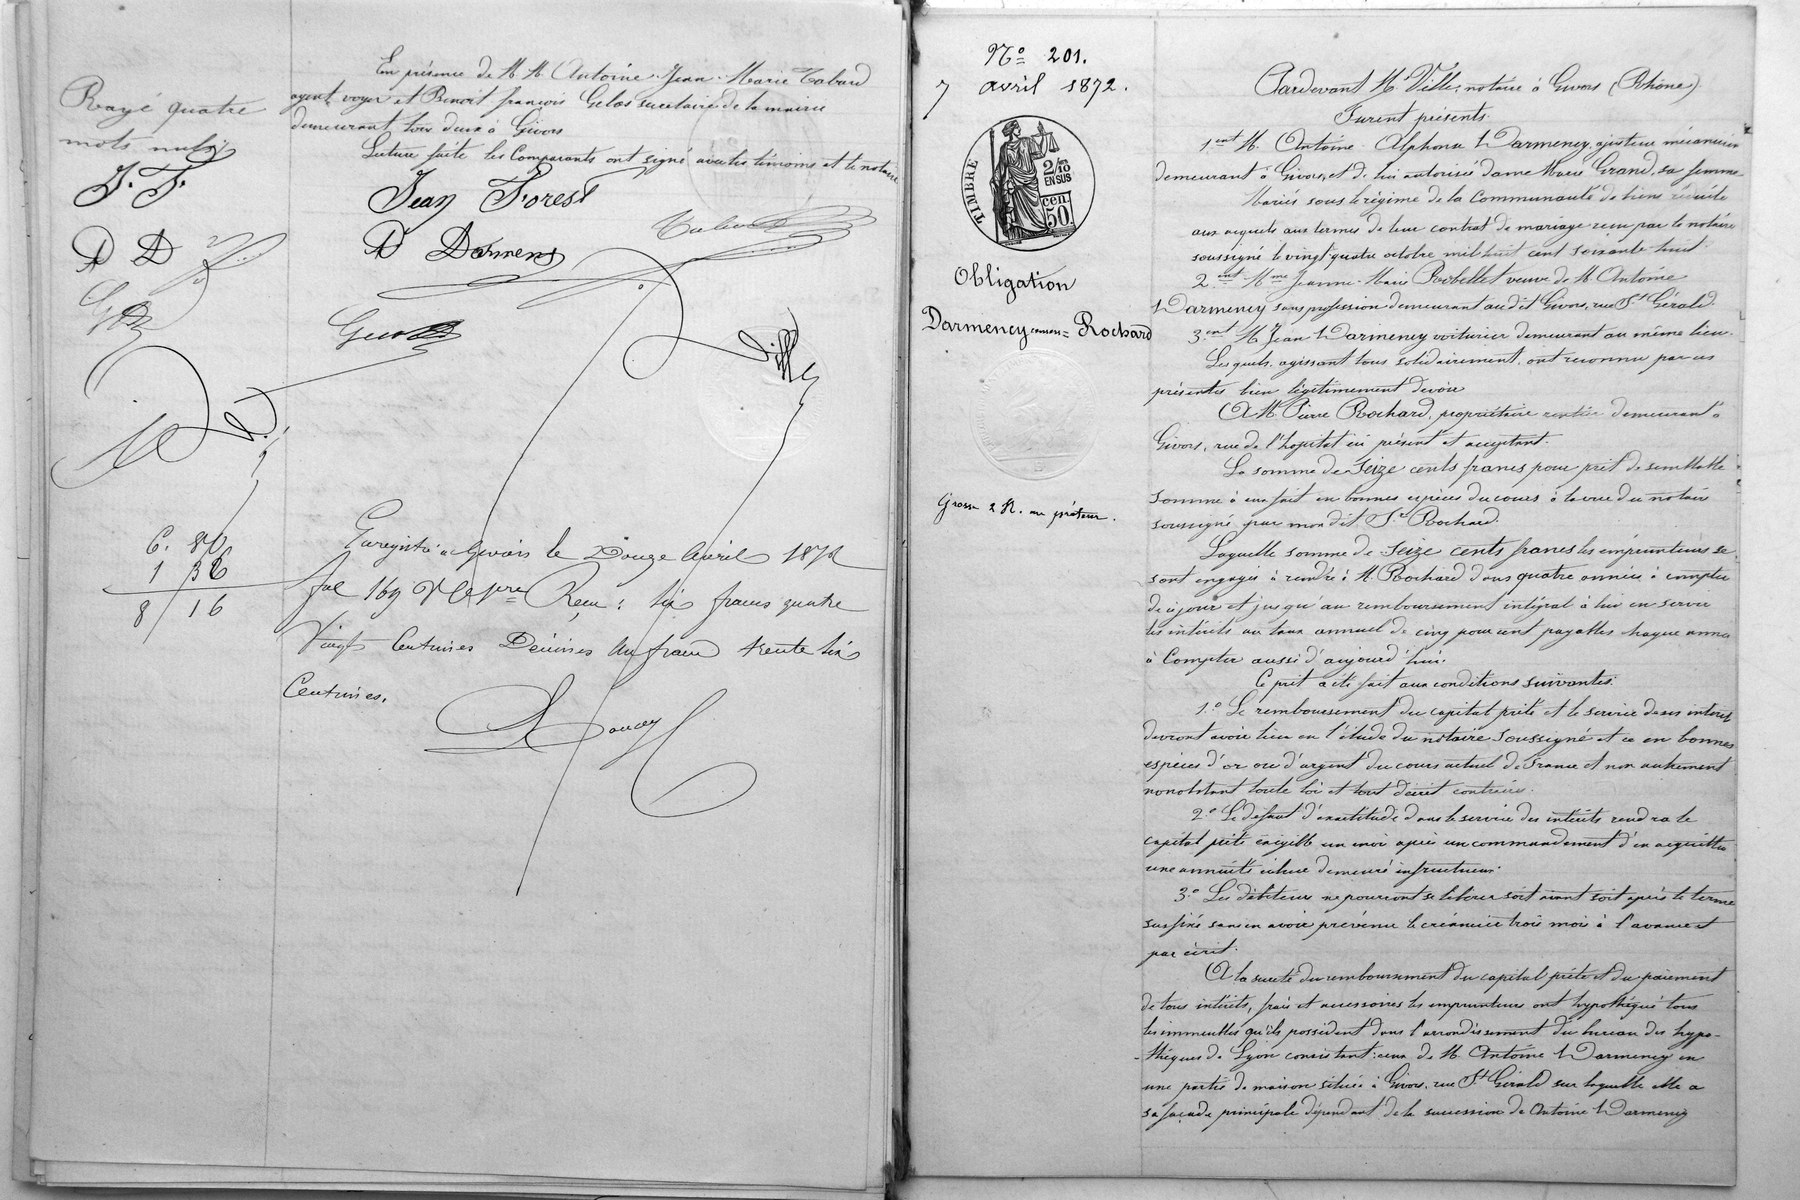 En présence de M.M. Antoine Jean Marie Tabard
agent voyer et Benoit françois Gelas secrétaire de la mairie
demeurant tous deux à Givors
Lecture faite les Comparants ont signé avec les témoins et le notaire
Rayé quatre
mots nuls
J. F.
Jean Forest
A D
A Darmency
Ville
6. 80
1 36
8 16
Enregistré à Givors le Douze Avril 1872
fol 169 Reçu: six francs quatre
Vingt Centimes Décimes Un franc trente six
Centimes.
No 201.
7 avril 1872.
TIMBRE
2/10
EN SUS
50 cen.
Obligation
Darmency Rochard
Grosse 2 R. au prêteur.
Pardevant Me Ville, notaire à Givors (Rhône)
Furent présents
1ent M. Antoine Alphonse Darmency, ajusteur mécanicien
demeurant à Givors, et de lui autorisée dame Marie Grand, sa femme
Mariés sous le régime de la Communauté de biens réduite
aux acquets aux termes de leur contrat de mariage reçu par le notaire
soussigné le vingt quatre octobre mil huit cent soixante huit
2ent Mme Jeanne Marie Robellet veuve de M. Antoine
Darmency sans profession demeurant audit Givors, rue St Gérald.
3ent M. Jean Darmency voiturier demeurant au même lieu.
Lesquels, agissant tous solidairement, ont reconnu par ces
présentes bien légitimement devoir
A M. Pierre Rochard, propriétaire rentier demeurant à
Givors, rue de l'hopital ici présent et acceptant.
La somme de Seize cents francs pour prêt de semblable
somme à eux fait en bonnes espèces du cours à la vue du notaire
soussigné par mondit Sr Rochard.
Laquelle somme de Seize cents francs les emprunteurs se
sont engagés à rendre à M. Rochard dans quatre années à compter
de ce jour et jusqu'au remboursement intégral à lui en servir
les intérêts au taux annuel de cinq pour cent payables chaque année
à Compter aussi d'aujourd'hui.
Ce prêt a été fait aux conditions suivantes:
1o Le remboursement du capital prêté et le service de ses intérêts
devront avoir lieu en l'étude du notaire soussigné et ce en bonnes
espèces d'or ou d'argent du cours actuel de France et non autrement
nonobstant toute loi et tout décret contraires.
2o Le défaut d'exactitude dans le service des intérêts rendra le
capital prêté exigible un mois après un commandement d'en acquitter
une annuité échue demeuré infructueux.
3o Les débiteurs ne pourront se libérer soit avant soit après le terme
susfixé sans en avoir prévenu le créancier trois mois à l'avance et
par écrit.
A la sureté du remboursement du capital prêté et du paiement
de tous intérêts, frais et accessoires les emprunteurs ont hypothéqué tous
les immeubles qu'ils possèdent dans l'arrondissement du bureau des hypo-
-thèques de Lyon consistant: ceux de M. Antoine Darmency en
une partie de maison située à Givors, rue St Gérald sur laquelle elle a
sa façade principale dépendant de la succession de Antoine Darmency